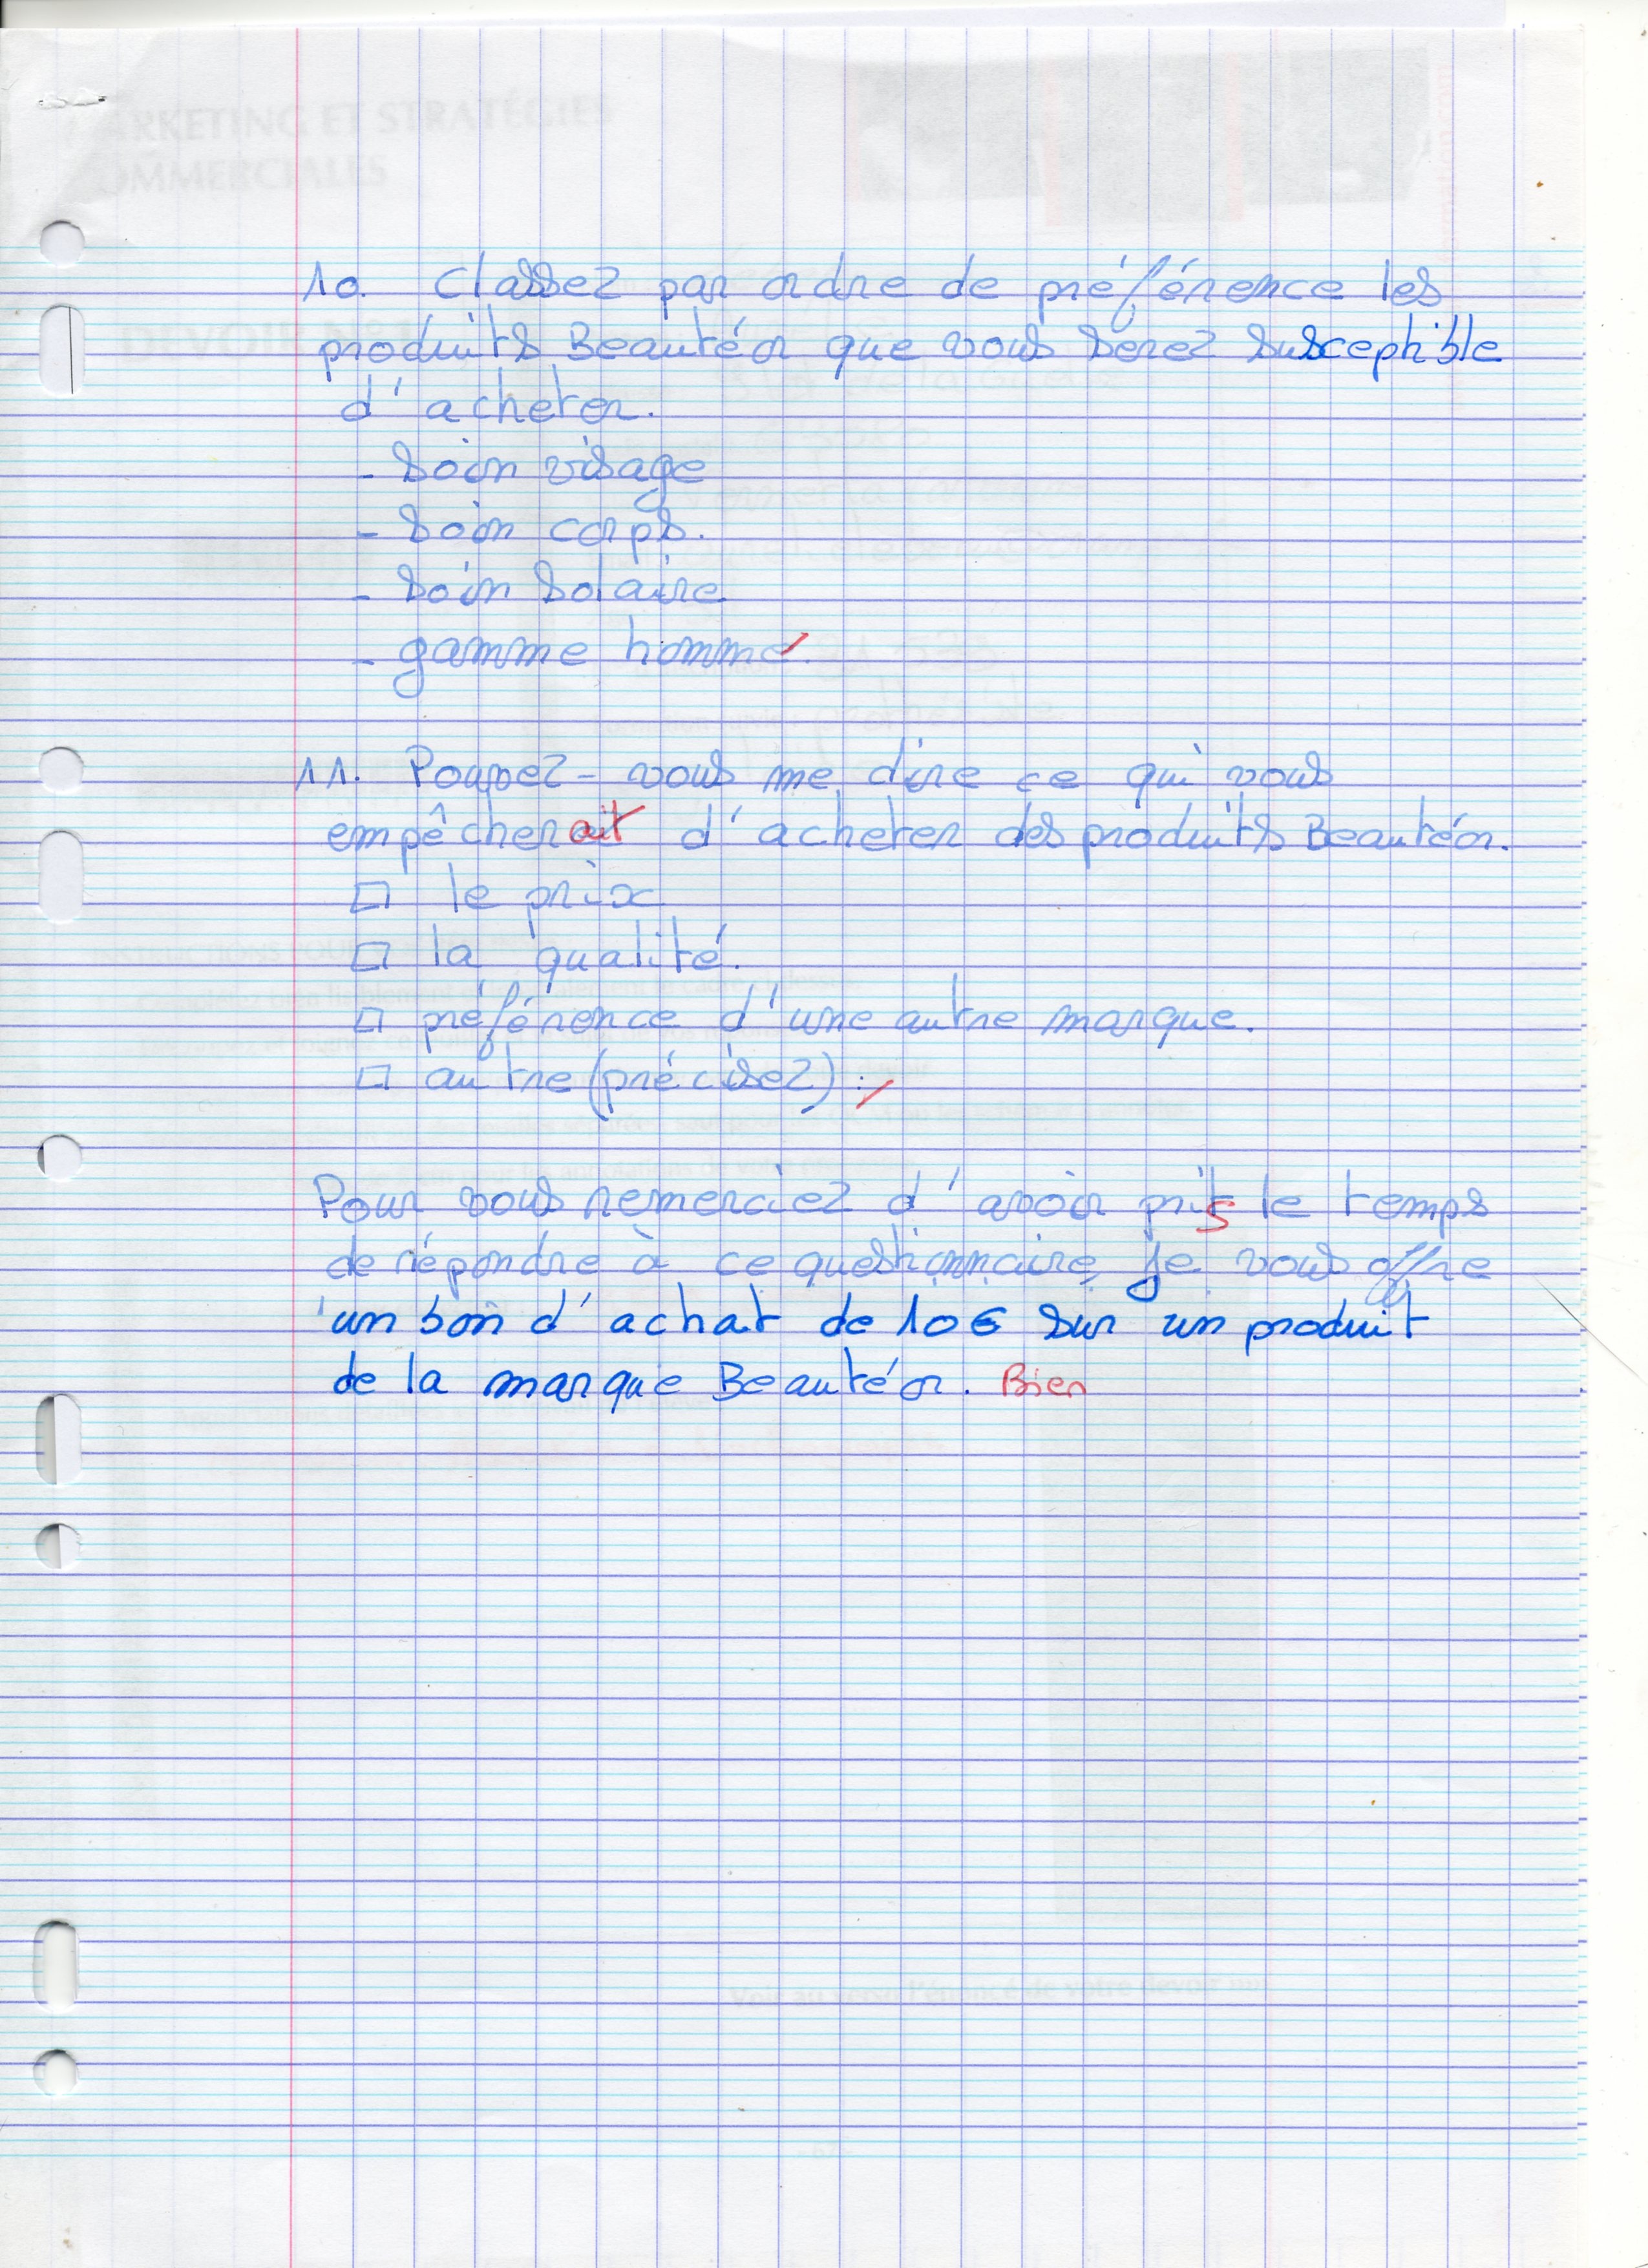 10. Classez par ordre de préférence les
produits Beautéor que vous serez susceptible
d'acheter.
- Soin visage
- Soin corps.
- Soin Solaire
- gamme homme.
11. Pouvez-vous me dire ce qui vous
empêcherait d'acheter des produits Beautéor.
□ le prix
□ la qualité.
□ préférence d'une autre marque.
□ autre (précisez) :
Pour vous remerciez d'avoir pris le temps
de répondre à ce questionnaire, je vous offre
un bon d'achat de 10€ sur un produit
de la marque Beautéor. Bien
MARKETING ET STRATÉGIES
COMMERCIALES
DEVOIR
Voir au verso l'énoncé de votre devoir